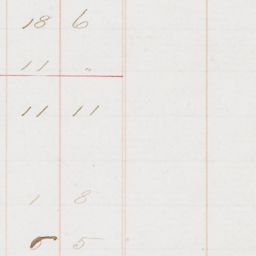 18 6
11 "
11 11
1 8
6 5